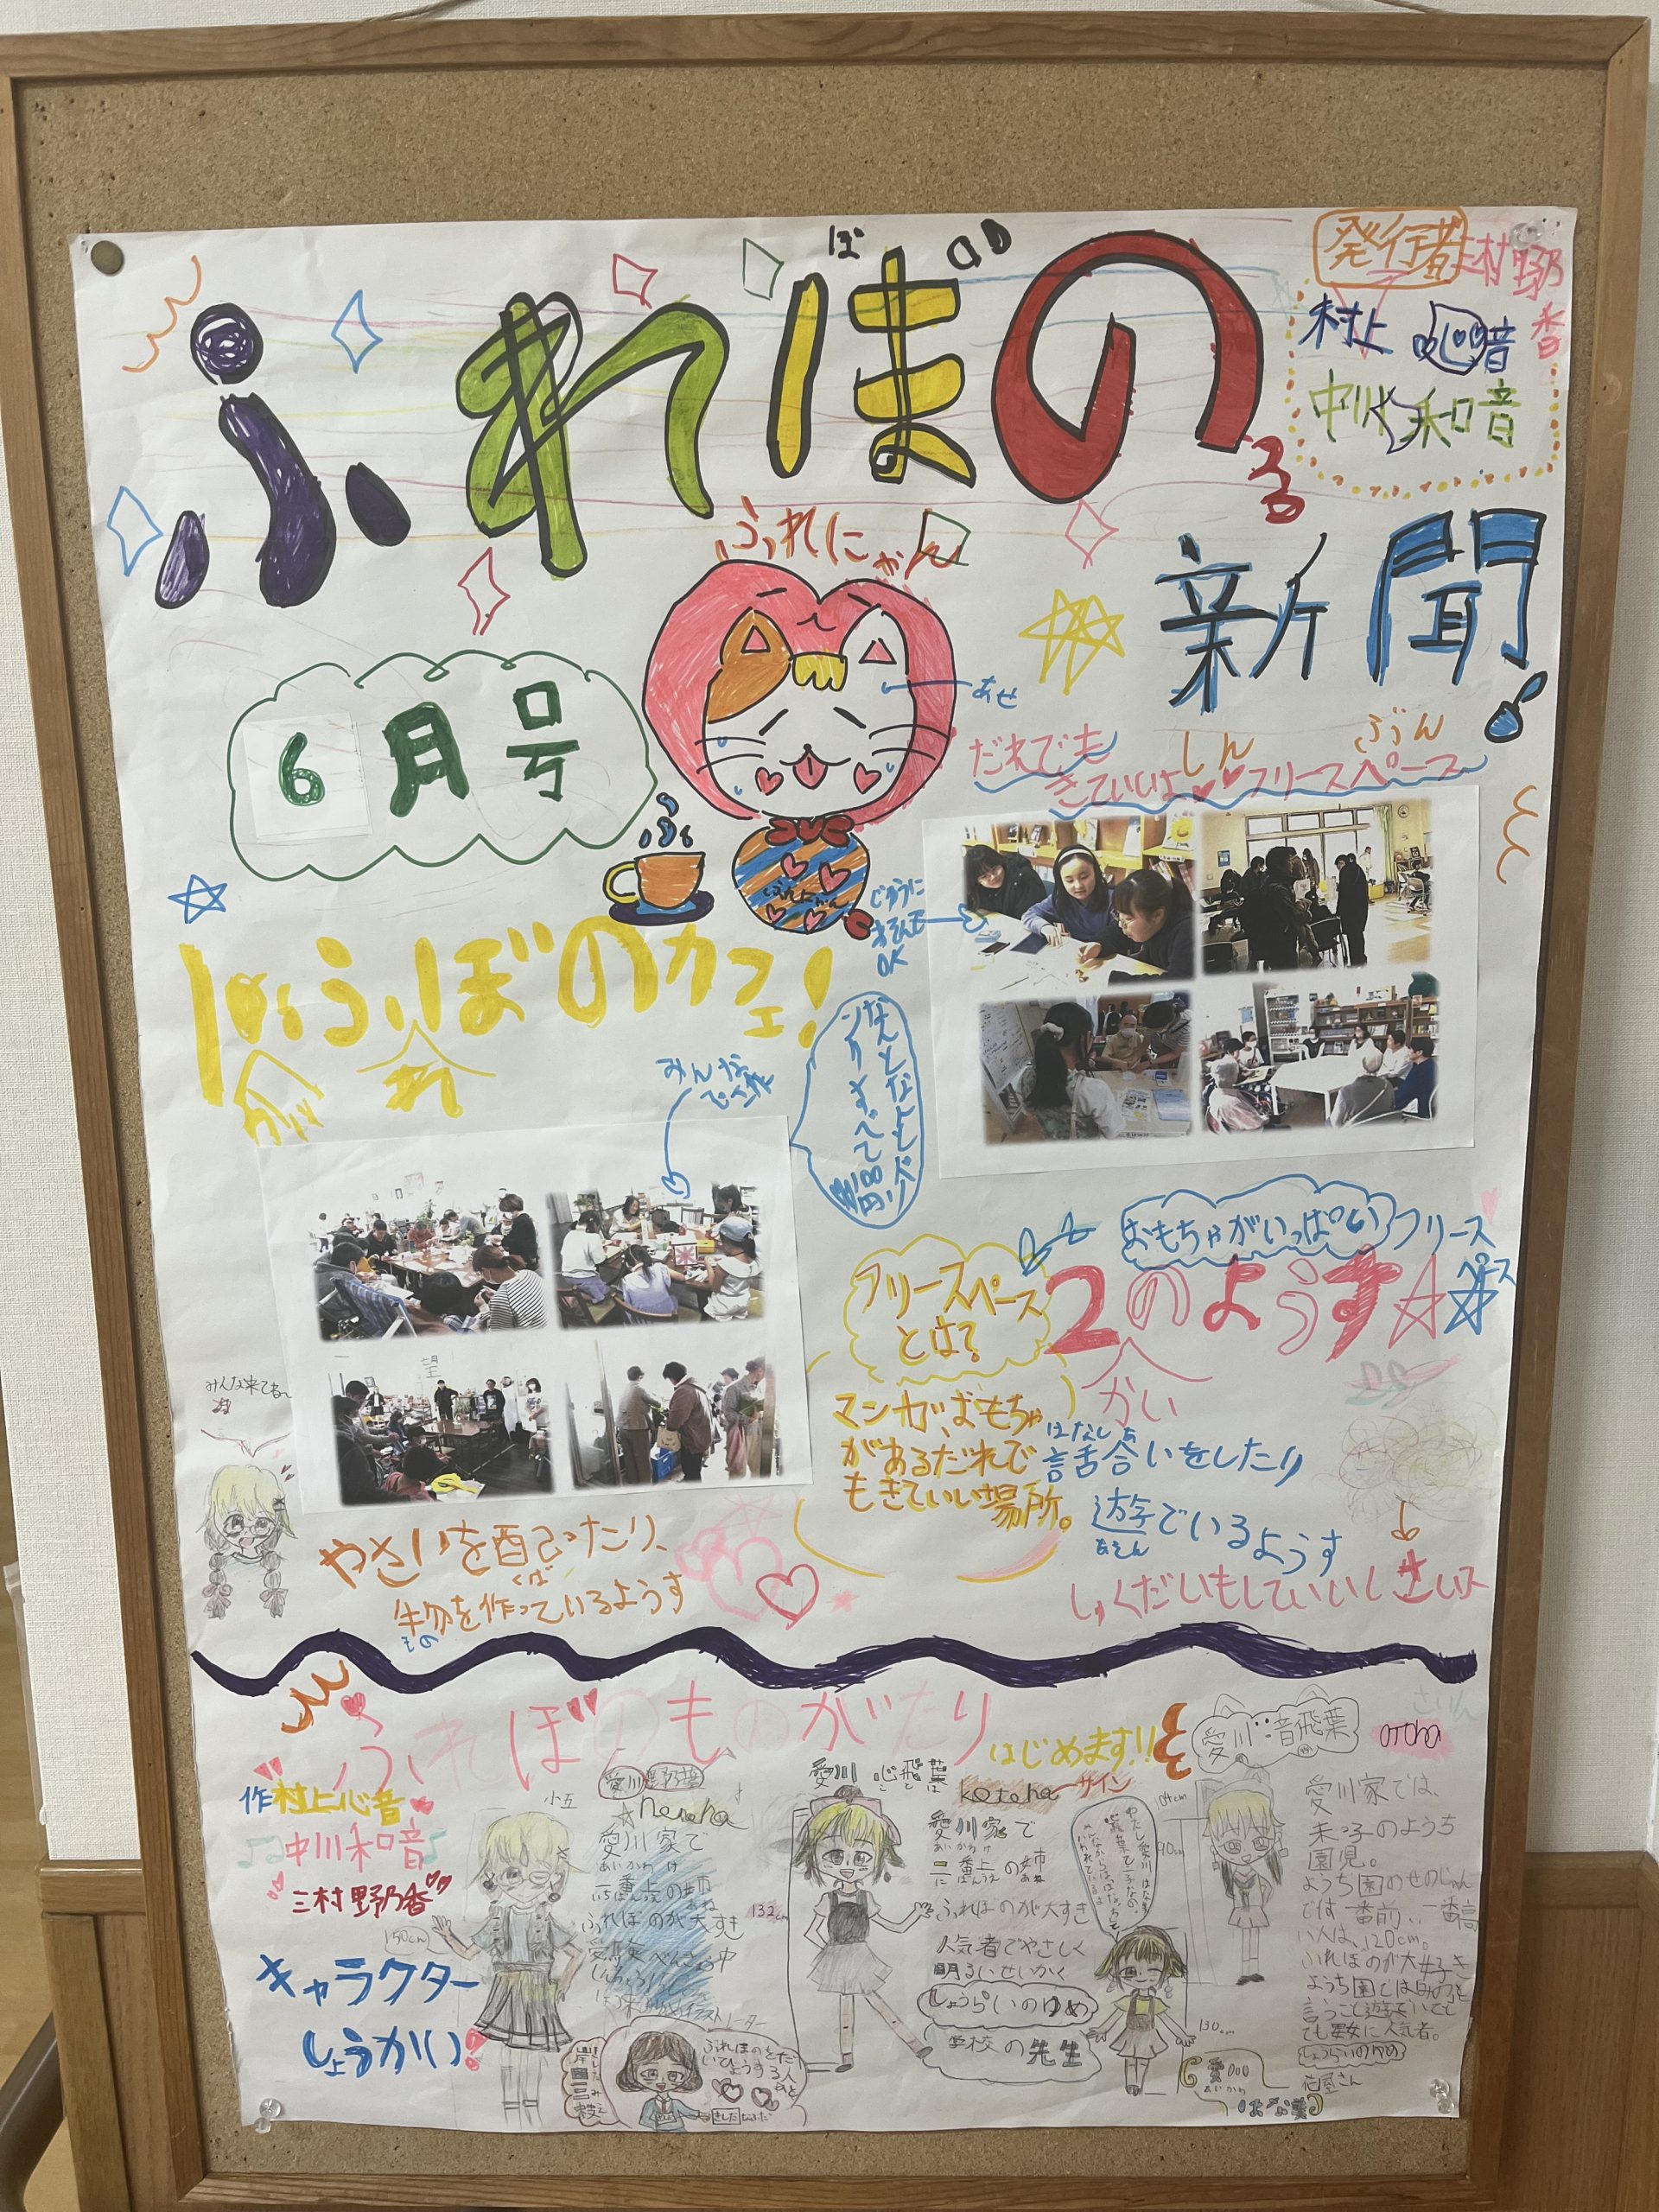 ふれぼの
新聞
しん ぶん
発行者
三村野乃香
村上 心音
中川 和音
6月号
ふれにゃん
あせ
だれでも
きていいよ フリースペース
じゆうに
あそんで
OK
ふれぼのカフェ!
なんとなんとドリ
ンクすべて100円
みんな
みんな来てね〜
おもちゃがいっぱいフリース
ペース
フリースペース
とは?
2かいのようす
マンガ、おもちゃ
があるだれで
もきていい場所。
はなし あ
話合いをしたり
遊んでいるようす
しゅくだいもしていいし
やさいを配ったり、
くば
物を作っているようす
もの
ふれぼのものがたり
はじめます!!
作 村上心音
中川和音
三村野乃香
キャラクター
しょうかい!
小五
愛川
愛川家で
あいかわ け
一番上の姉
いちばんうえ あね
ふれぼのが大すき
150cm
愛川 心飛葉
kotoha サイン
愛川家で
あいかわ け
二番上の姉
に ばんうえ あね
ふれぼのが大すき
人気者でやさしく
明るいせいかく
しょうらいのゆめ
学校の先生
132cm
130cm
愛川
あいかわ
愛川 音飛葉
otoha
さいん
90cm
愛川家では、
末っ子のようち
園児。
ようち園のせのじゅん
では一番前、一番高
い人は、120cm。
ふれぼのが大好き
ても男女に人気者。
しょうらいのゆめ
花屋さん